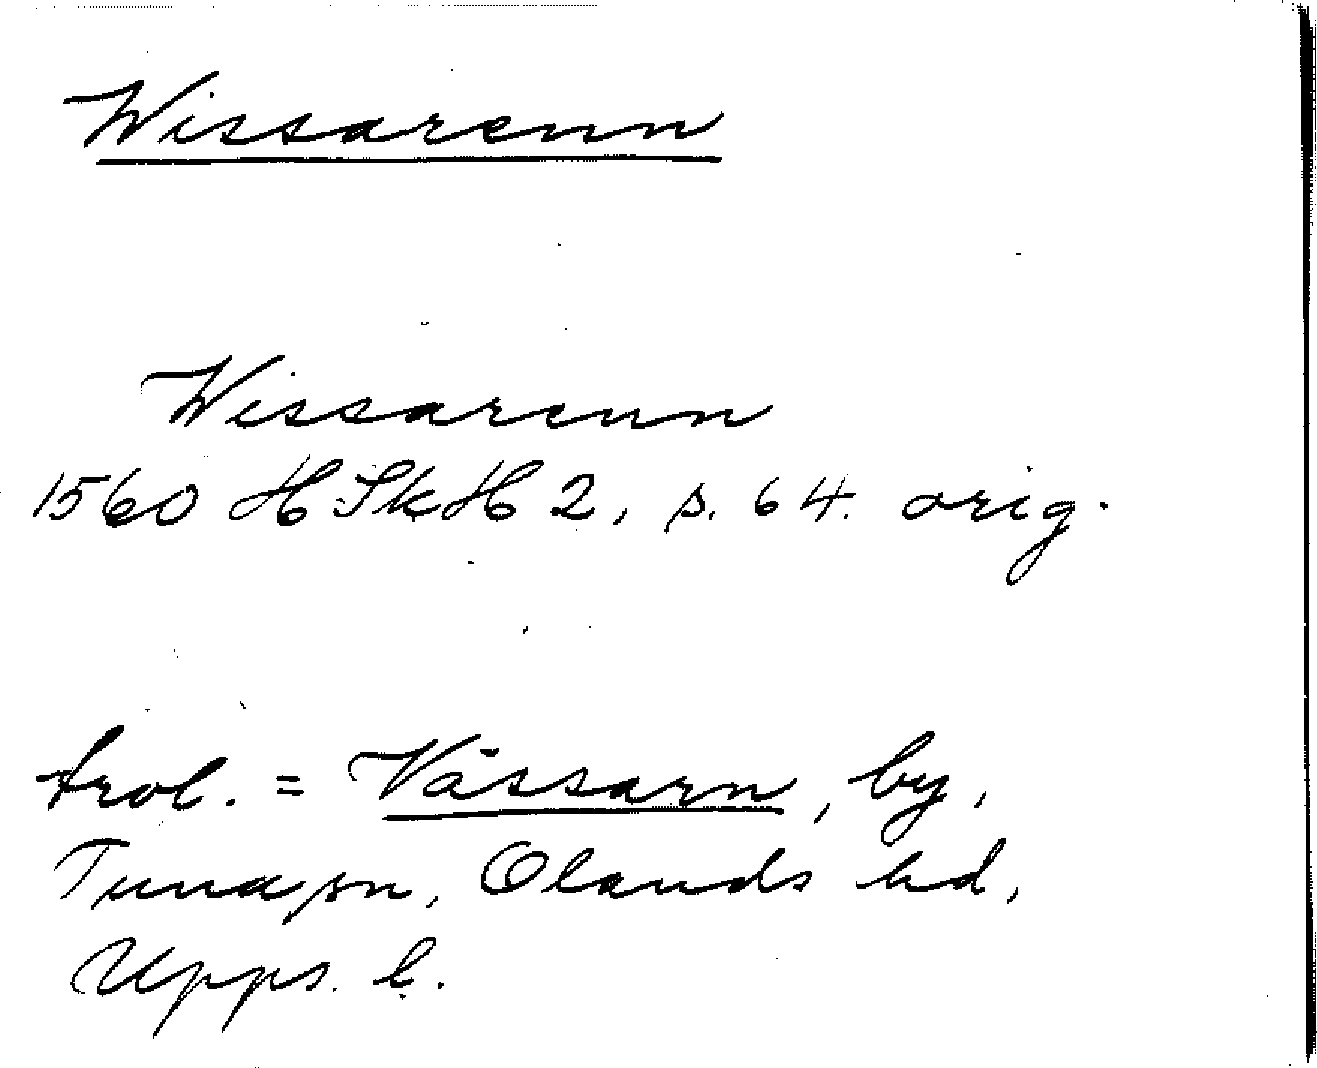 Wissarenn
Wissarenn
1560 HSkH 2, s. 64. orig.
trol. = Vässarn, by,
Tuna sn, Olands hd,
Upps. l.